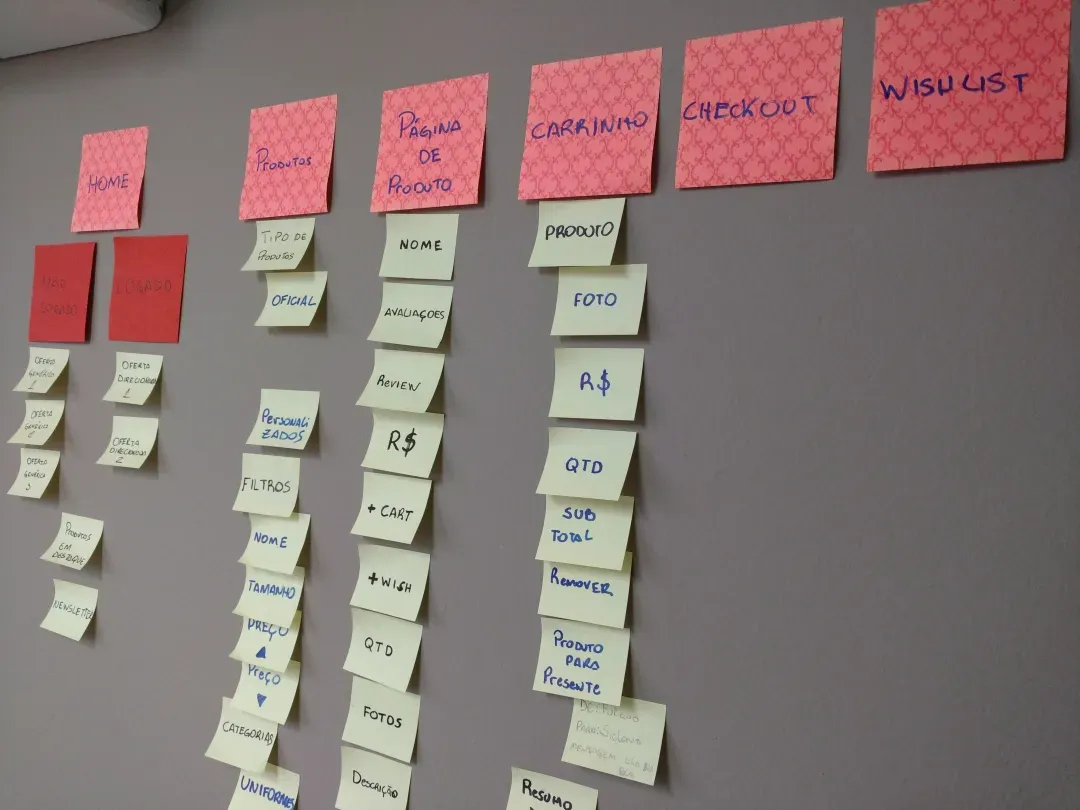 HOME
NÃO
LOGADO
LOGADO
OFERTA
GENÉRICA
1
OFERTA
GENÉRICA
2
OFERTA
GENÉRICA
3
OFERTA
DIRECIONADA
1
OFERTA
DIRECIONADA
2
PRODUTOS
EM
DESTAQUE
NEWSLETTER
PRODUTOS
TIPO DE
PRODUTOS
OFICIAL
PERSONALI
ZADOS
FILTROS
NOME
TAMANHO
PREÇO
▲
PREÇO
▼
CATEGORIAS
UNIFORMES
PÁGINA
DE
PRODUTO
NOME
AVALIAÇOES
REVIEW
R$
+ CART
+ WISH
QTD
FOTOS
DESCRIÇÃO
CARRINHO
PRODUTO
FOTO
R$
QTD
SUB
TOTAL
REMOVER
PRODUTO
PARA
PRESENTE
RESUMO
CHECKOUT
WISHLIST